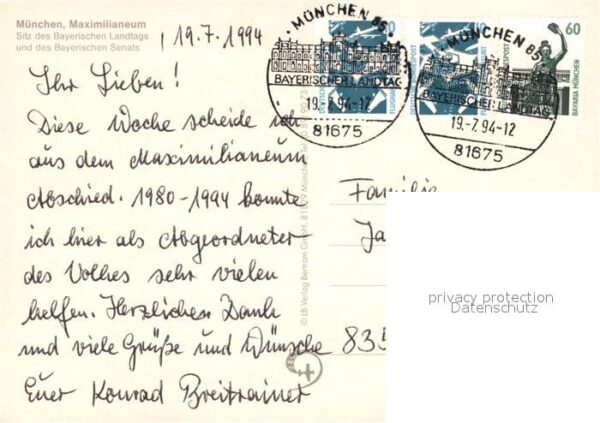 München, Maximilianeum
Sitz des Bayerischen Landtags
und des Bayerischen Senats
19.7.1994
Ihr Lieben!
Diese Woche scheide ich
aus dem Maximilianeum
Abschied. 1980-1994 konnte
ich hier als Abgeordneter
des Volkes sehr vielen
helfen. Herzlichen Dank
und viele Grüße und Wünsche
Euer Konrad Breitrainer
© LB-Verlag Bertram GmbH, 81829 München
MÜNCHEN 85
BAYERISCHER LANDTAG
19.-7.94-12
81675
MÜNCHEN 85
BAYERISCHER LANDTAG
19.-7.94-12
81675
60
BAVARIA MÜNCHEN
Familie
Ja
835
privacy protection
Datenschutz